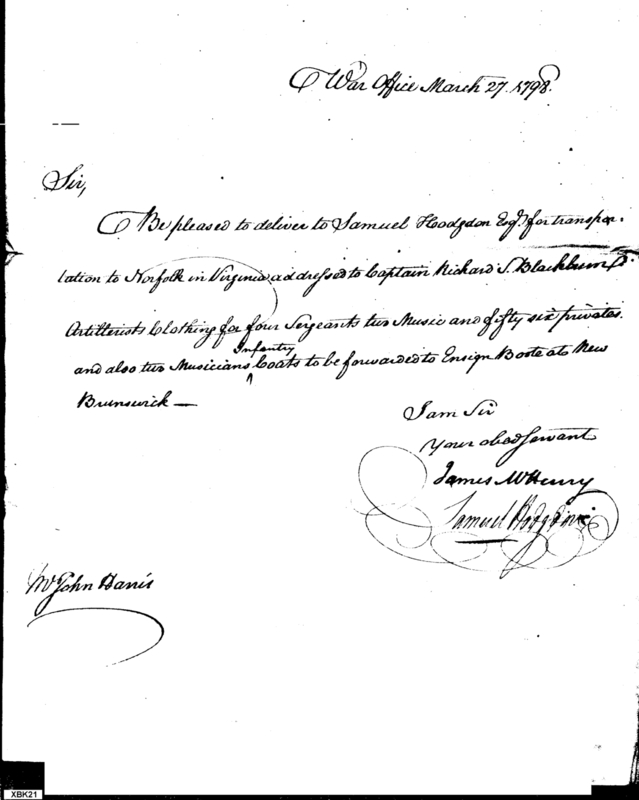 War Office March 27. 1798.
Sir,
Be pleased to deliver to Samuel Hodgdon Esqr. for transpor-
tation to Norfolk in Virginia addressed to Captain Richard S. Blackburn
Artillerists Clothing for four Sergeants two Music and fifty six privates.
Infantry
and also two Musicians ^ Coats to be forwarded to Ensign Boote at New
Brunswick —
I am Sir
Your obed Servant
James McHenry
Samuel Hodgdon
Mr John Harris
XBK21